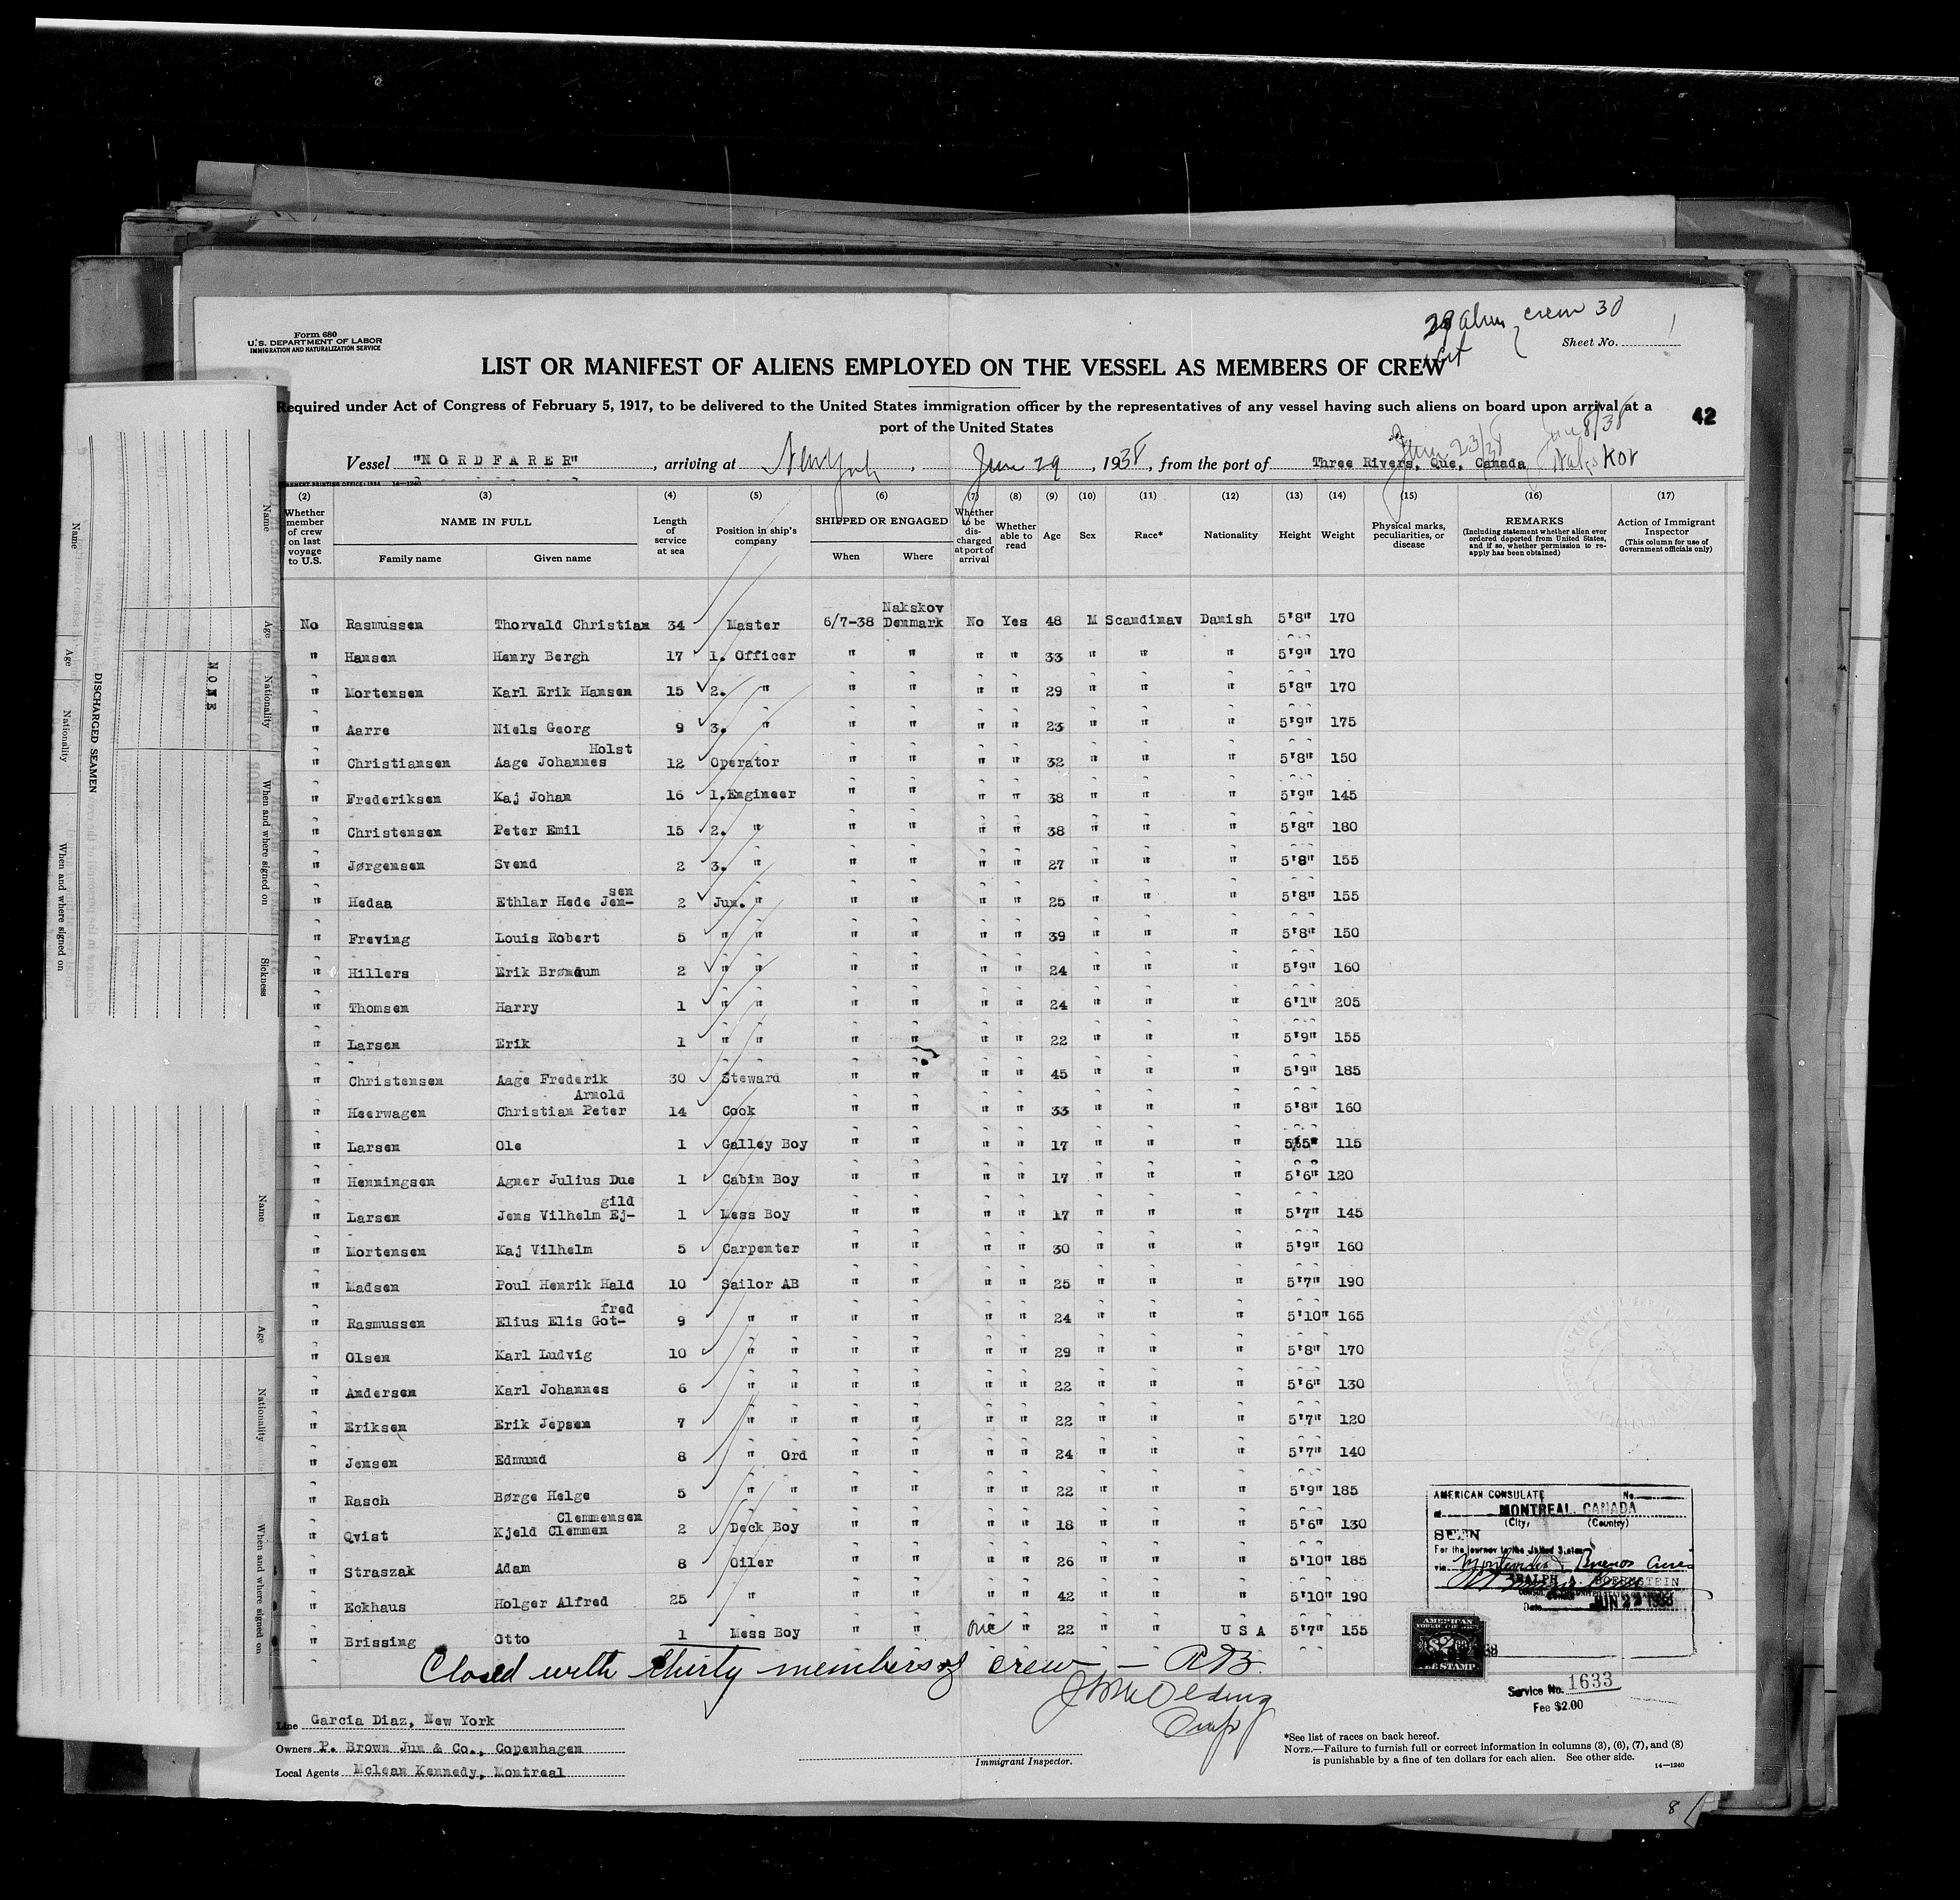 29 alien crew 30
1 cit
Form 680
U.S. DEPARTMENT OF LABOR
IMMIGRATION AND NATURALIZATION SERVICE
Sheet No.
LIST OR MANIFEST OF ALIENS EMPLOYED ON THE VESSEL AS MEMBERS OF CREW
Required under Act of Congress of February 5, 1917, to be delivered to the United States immigration officer by the representatives of any vessel having such aliens on board upon arrival at a
port of the United States
42
June 23/38
Vessel "NORDFARER", arriving at New York, June 29, 1938, from the port of Three Rivers, Que, Canada Nakskov
(2) (3) (4) (5) (6) (7) (8) (9) (10) (11) (12) (13) (14) (15) (16) (17)
Whether member of crew on last voyage to U.S. NAME IN FULL Family name Given name Length of service at sea Position in ship's company SHIPPED OR ENGAGED When Where Whether to be discharged at port of arrival Whether able to read Age Sex Race* Nationality Height Weight Physical marks, peculiarities, or disease REMARKS (Including statement whether alien ever ordered deported from United States, and if so, whether permission to re-apply has been obtained) Action of Immigrant Inspector (This column for use of Government officials only)
Nakskov
No Rasmussen Thorvald Christian 34 Master 6/7-38 Denmark No Yes 48 M Scandinav Danish 5'8" 170
" Hansen Henry Bergh 17 1. Officer " " " " 33 " " " 5'9" 170
" Mortensen Karl Erik Hansen 15 2. " " " " " 29 " " " 5'8" 170
" Aarre Niels Georg 9 3. " " " " " 23 " " " 5'9" 175
Holst
" Christiansen Aage Johannes 12 Operator " " " " 32 " " " 5'8" 150
" Frederiksen Kaj Johan 16 1.Engineer " " " " 38 " " " 5'9" 145
" Christensen Peter Emil 15 2. " " " " " 38 " " " 5'8" 180
" Jørgensen Svend 2 3. " " " " " 27 " " " 5'8" 155
sen
" Hedaa Ethlar Hede Jen- 2 Jun. " " " " " 25 " " " 5'8" 155
" Freving Louis Robert 5 " " " " " " 39 " " " 5'8" 150
" Hillers Erik Brøndum 2 " " " " " " 24 " " " 5'9" 160
" Thomsen Harry 1 " " " " " " 24 " " " 6'1" 205
" Larsen Erik 1 " " " " " " 22 " " " 5'9" 155
" Christensen Aage Frederik 30 Steward " " " " 45 " " " 5'9" 185
Arnold
" Heerwagen Christian Peter 14 Cook " " " " 33 " " " 5'8" 160
" Larsen Ole 1 Galley Boy " " " " 17 " " " 5'5" 115
" Henningsen Agner Julius Due 1 Cabin Boy " " " " 17 " " " 5'6" 120
gild
" Larsen Jens Vilhelm Ej- 1 Mess Boy " " " " 17 " " " 5'7" 145
" Mortensen Kaj Vilhelm 5 Carpenter " " " " 30 " " " 5'9" 160
" Madsen Poul Henrik Hald 10 Sailor AB " " " " 25 " " " 5'7" 190
fred
" Rasmussen Elius Elis Got- 9 " " " " " " 24 " " " 5'10" 165
" Olsen Karl Ludvig 10 " " " " " " 29 " " " 5'8" 170
" Andersen Karl Johannes 6 " " " " " " 22 " " " 5'6" 130
" Eriksen Erik Jepsen 7 " " " " " " 22 " " " 5'7" 120
" Jensen Edmund 8 " Ord " " " " 24 " " " 5'7" 140
" Rasch Børge Helge 5 " " " " " " 22 " " " 5'9" 185
Clemmensen
" Qvist Kjeld Clemmen 2 Deck Boy " " " " 18 " " " 5'6" 130
" Straszak Adam 8 Oiler " " " " 26 " " " 5'10" 185
" Eckhaus Holger Alfred 25 " " " " " 42 " " " 5'10" 190
" Brissing Otto 1 Mess Boy " " one " 22 " " USA 5'7" 155
Closed with thirty members of crew — RAB.
AMERICAN CONSULATE No.
at MONTREAL, CANADA
(City) (Country)
SEEN
For the journey to the United States
via Montevideo & Buenos Aires
RALPH A. BOERNSTEIN
Date JUN 22 1938
AMERICAN
$2
FEE STAMP
Service No. 1633
Fee $2.00
Line Garcia Diaz, New York
Owners P. Brown Jun & Co., Copenhagen
Local Agents Mclean Kennedy, Montreal
Immigrant Inspector.
*See list of races on back hereof.
NOTE.—Failure to furnish full or correct information in columns (3), (6), (7), and (8)
is punishable by a fine of ten dollars for each alien. See other side.
14—1240
8
Name
Age
Nationality
When and where signed on
DISCHARGED SEAMEN
NONE
Name
Age
Nationality
When and where signed on
Sickness
Name
Age
Nationality
When and where signed on